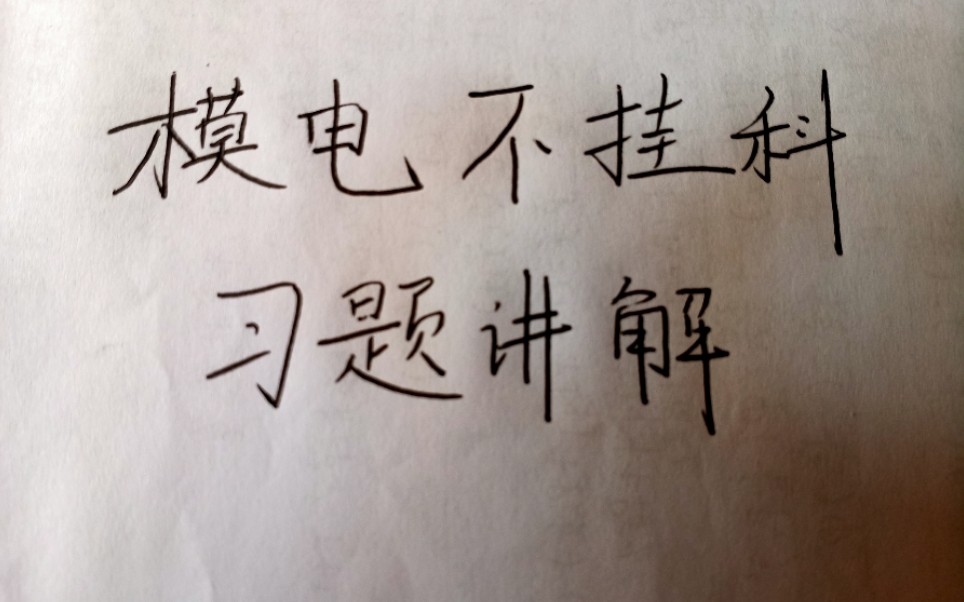 模电不挂科
习题讲解